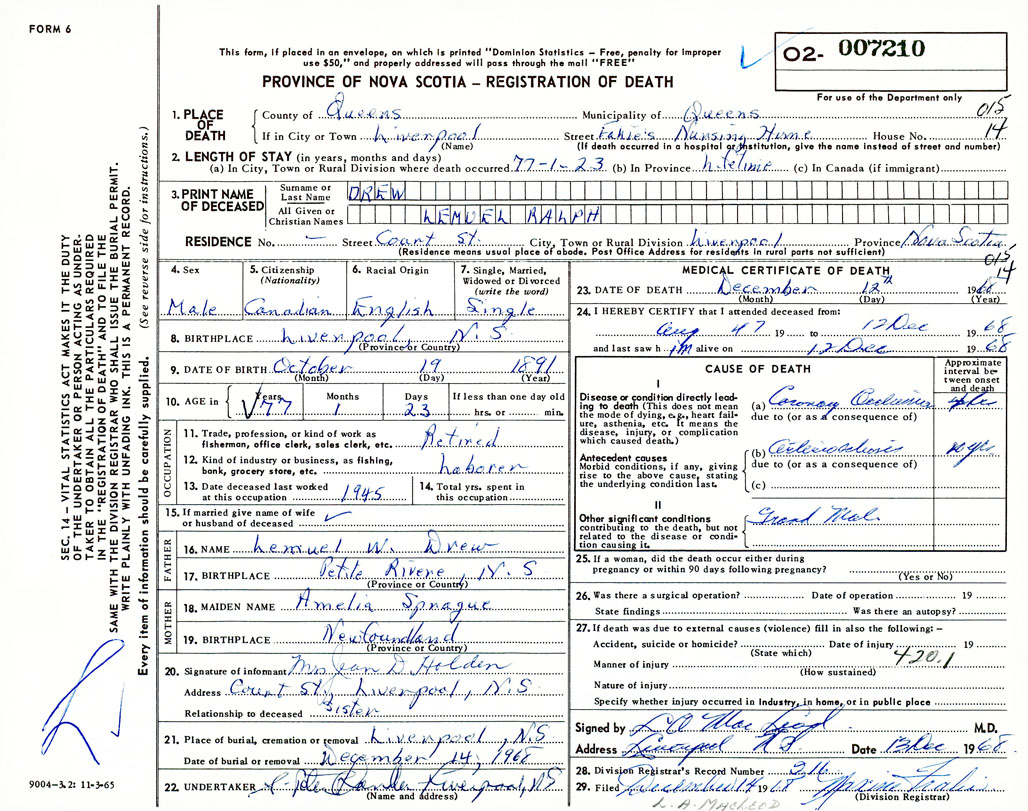 FORM 6
This form, if placed in an envelope, on which is printed "Dominion Statistics – Free, penalty for improper
use $50," and properly addressed will pass through the mail "FREE"
PROVINCE OF NOVA SCOTIA – REGISTRATION OF DEATH
02- 007210
For use of the Department only
015
14
1. PLACE OF DEATH
County of Queens Municipality of Queens
If in City or Town Liverpool Street Nursing Home House No.
(Name) (If death occurred in a hospital or institution, give the name instead of street and number)
2. LENGTH OF STAY (in years, months and days)
(a) In City, Town or Rural Division where death occurred 77-1-23 (b) In Province Lifetime (c) In Canada (if immigrant)
3. PRINT NAME OF DECEASED
Surname or Last Name DREW
All Given or Christian Names LEMUEL RALPH
RESIDENCE No. – Street Court St. City, Town or Rural Division Liverpool Province Nova Scotia
(Residence means usual place of abode. Post Office Address for residents in rural parts not sufficient)
015
14
4. Sex Male
5. Citizenship (Nationality) Canadian
6. Racial Origin English
7. Single, Married, Widowed or Divorced (write the word) Single
8. BIRTHPLACE Liverpool, N.S
(Province or Country)
9. DATE OF BIRTH October 19 1891
(Month) (Day) (Year)
10. AGE in Years 77 Months 1 Days 23 If less than one day old hrs. or min.
OCCUPATION
11. Trade, profession, or kind of work as fisherman, office clerk, sales clerk, etc. Retired
12. Kind of industry or business, as fishing, bank, grocery store, etc. Laborer
13. Date deceased last worked at this occupation 1945
14. Total yrs. spent in this occupation
15. If married give name of wife or husband of deceased
FATHER
16. NAME Lemuel W. Drew
17. BIRTHPLACE Petite Rivere, N.S
(Province or Country)
MOTHER
18. MAIDEN NAME Amelia Sprague
19. BIRTHPLACE Newfoundland
(Province or Country)
20. Signature of informant Mrs Jean D. Holden
Address Court St, Liverpool, N.S
Relationship to deceased Sister
21. Place of burial, cremation or removal Liverpool, N.S
Date of burial or removal December 14, 1968
22. UNDERTAKER Liverpool, NS
(Name and address)
MEDICAL CERTIFICATE OF DEATH
23. DATE OF DEATH December 12th 1968
(Month) (Day) (Year)
24. I HEREBY CERTIFY that I attended deceased from:
Aug 47 19 to 12 Dec 1968
and last saw h im alive on 12 Dec 1968
CAUSE OF DEATH
Approximate interval between onset and death
I
Disease or condition directly leading to death (This does not mean the mode of dying, e.g., heart failure, asthenia, etc. It means the disease, injury, or complication which caused death.)
(a) Coronary Occlusion
due to (or as a consequence of)
Antecedent causes
Morbid conditions, if any, giving rise to the above cause, stating the underlying condition last.
(b) Arteriosclerosis yrs
due to (or as a consequence of)
(c)
II
Other significant conditions contributing to the death, but not related to the disease or condition causing it.
Grand Mal
25. If a woman, did the death occur either during pregnancy or within 90 days following pregnancy?
(Yes or No)
26. Was there a surgical operation? Date of operation 19
State findings Was there an autopsy?
27. If death was due to external causes (violence) fill in also the following: –
Accident, suicide or homicide? Date of injury 19
(State which) 420.1
Manner of injury
(How sustained)
Nature of injury
Specify whether injury occurred in Industry, in home, or in public place
Signed by L A MacLeod M.D.
Address Liverpool NS Date 13 Dec 1968
28. Division Registrar's Record Number
29. Filed December 14 1968
(Division Registrar)
L. A. MACLEOD
SEC. 14 – VITAL STATISTICS ACT MAKES IT THE DUTY
OF THE UNDERTAKER OR PERSON ACTING AS UNDER-
TAKER TO OBTAIN ALL THE PARTICULARS REQUIRED
IN THE "REGISTRATION OF DEATH" AND TO FILE THE
SAME WITH THE DIVISION REGISTRAR WHO SHALL ISSUE THE BURIAL PERMIT.
WRITE PLAINLY WITH UNFADING INK. THIS IS A PERMANENT RECORD.
Every item of information should be carefully supplied. (See reverse side for instructions.)
9004-3.2: 11-3-65